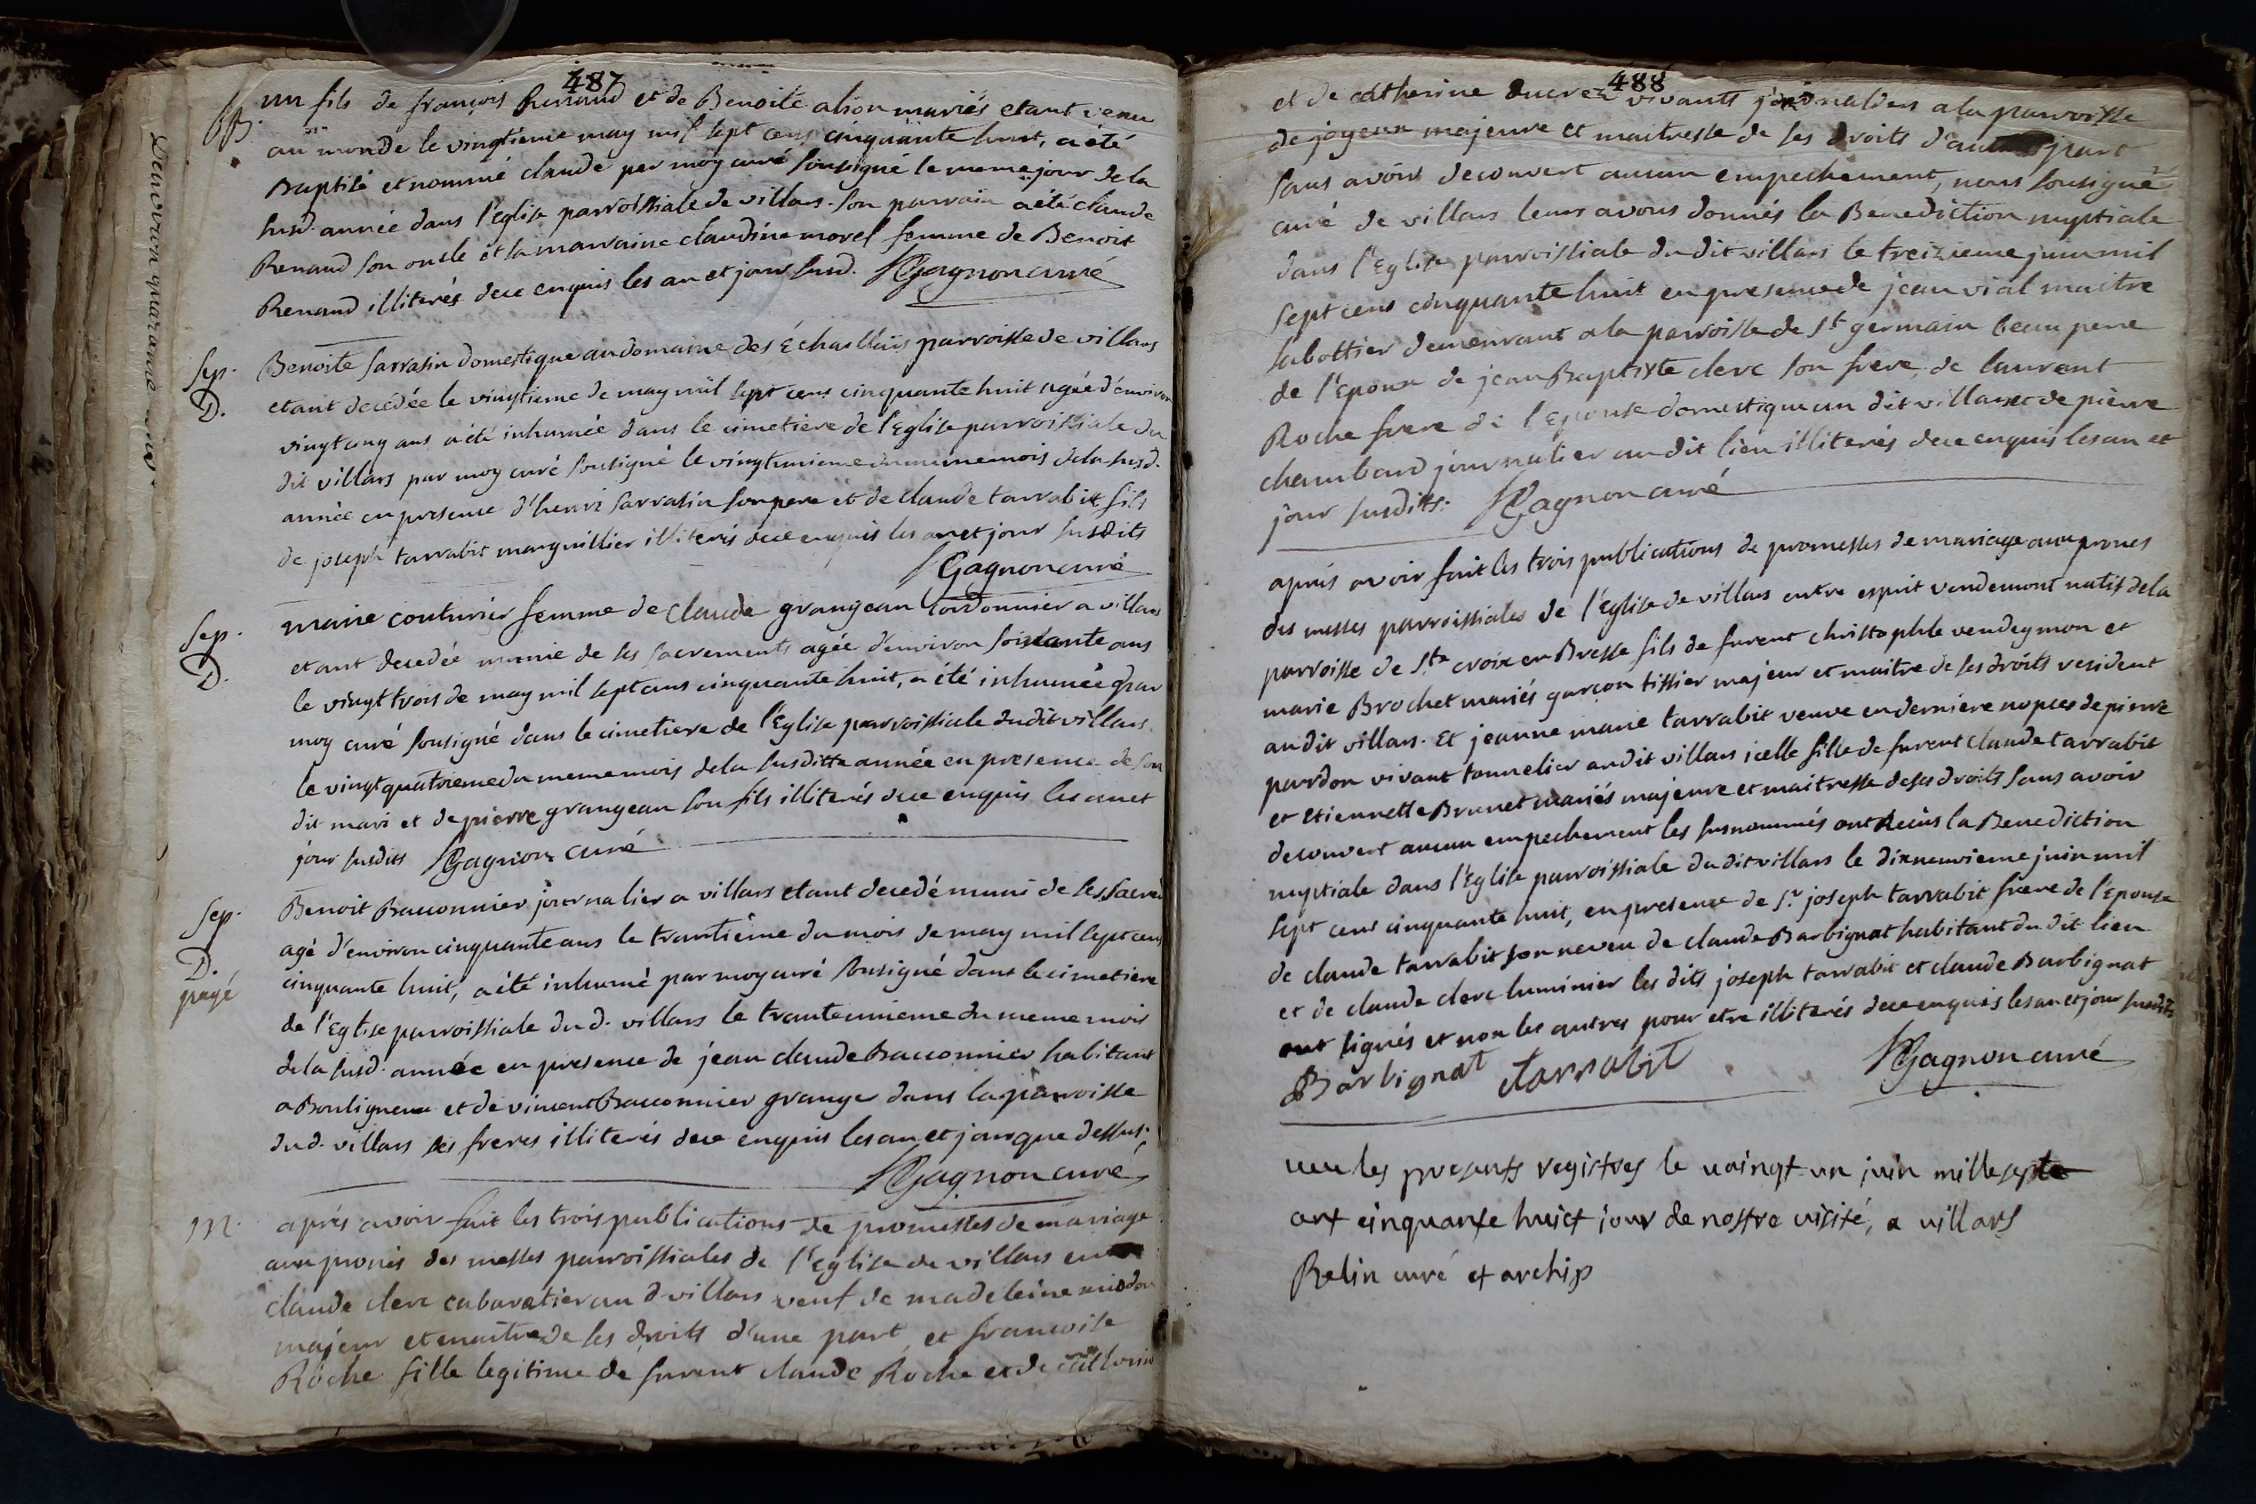 487
B. un fils de françois Renaud et de Benoite alion mariés etant venu
au monde le vingtieme may mil sept cens cinquante huit, a été
Baptisé et nommé claude par moy curé sousigné le meme jour de la
susd. année dans l'Eglise parroissiale de villars. son parrain a été claude
Renaud son oncle et sa marraine claudine morel femme de Benoit
Renaud illiterés dece enquis les an et jour susd. Gagnon curé
Sep. Benoite Sarrasin domestique au domaine des Échallais parroisse de villars
D. etant decedée le vingtieme de may mil sept cens cinquante huit agée d'environ
vingt cinq ans a été inhumée dans le cimetière de l'Eglise parroissiale du
dit villars par moy curé sousigné le vingtunieme du meme mois de la susd.
année en presence d'henri Sarrasin son pere et de claude tarrabit fils
de joseph tarrabit marguillier illiterés dece enquis les an et jour susdits
Gagnon curé
Sep. marie couturier femme de claude grangean cordonnier a villars
D. etant decedée munie de ses sacrements agée d'environ soixante ans
le vingt trois de may mil sept cens cinquante huit, a été inhumée par
moy curé sousigné dans le cimetiere de l'Eglise parroissiale dudit villars
le vingt quatrieme du meme mois de la susditte année en presence de son
dit mari et de pierre grangean son fils illiterés dece enquis les an et
jour susdits Gagnon curé
Sep. Benoit Baconnier journalier a villars etant decedé muni de ses sacrem
D. agé d'environ cinquante ans le trantième du mois de may mil sept cens
payé cinquante huit, a été inhumé par moy curé sousigné dans le cimetiere
de l'Eglise parroissiale dud. villars le tranteunieme du meme mois
de la susd. année en presence de jean claude Baconnier habitant
a Bouligneux et de vincent Baconnier granger dans la parroisse
dud. villars ses freres illiterés dece enquis les an et jour que dessus.
Gagnon curé
M. aprés avoir fait les trois publications de promesses de mariage
aux prones des messes parroissiales de l'Eglise de villars entre
claude clerc cabaretier au d villars veuf de madeleine
majeur et maitre de ses droits d'une part, et francoise
Roche fille legitime de furent claude Roche et de
488
et de catherine vivants journaliers a la parroisse
de joyeux majeure et maitresse de ses droits d'autre part
sans avoir decouvert aucun empechement, nous sousigné
curé de villars leurs avons donnés la Benediction nuptiale
dans l'Eglise parroissiale du dit villars le treizieme juin mil
sept cens cinquante huit en presence de jean vial maitre
sabottier demeurant a la parroisse de St germain beau pere
de l'Epoux de jean Baptiste clerc son frere, de laurent
Roche frere de l'Epouse domestique au dit villars et de pierre
chambard journalier au dit lieu illiterés dece enquis les an et
jour susdits. Gagnon curé
aprés avoir fait les trois publications de promesses de mariage aux prones
des messes parroissiales de l'Eglise de villars entre esprit vendemont natif de la
parroisse de Ste croix en Bresse fils de furent christophle vendeymon et
marie Brochet mariés garçon tissier majeur et maitre de ses droits resident
audit villars. Et jeanne marie tarrabit veuve en derniere nopces de pierre
pardon vivant tonnelier audit villars icelle fille de furent claude tarrabit
et etiennette Brunet mariés majeure et maitresse de ses droits sans avoir
decouvert aucun empechement les susnommés ont Recûs la Benediction
nuptiale dans l'Eglise parroissiale du dit villars le dixneuvieme juin mil
sept cens cinquante huit, en presence de Sr joseph tarrabit frere de l'Epouse
de claude tarrabit son neveu de claude Barbignat habitant du dit lieu
et de claude clerc luminier les dits joseph tarrabit et claude Barbignat
ont signés et non les autres pour etre illiterés dece enquis les an et jour susdits
Barbignat Tarrabit Gagnon curé
veu les presents registres le vaingt un juin mille septe
cinquante huict jour de nostre visité, a villars
Relin curé et archip